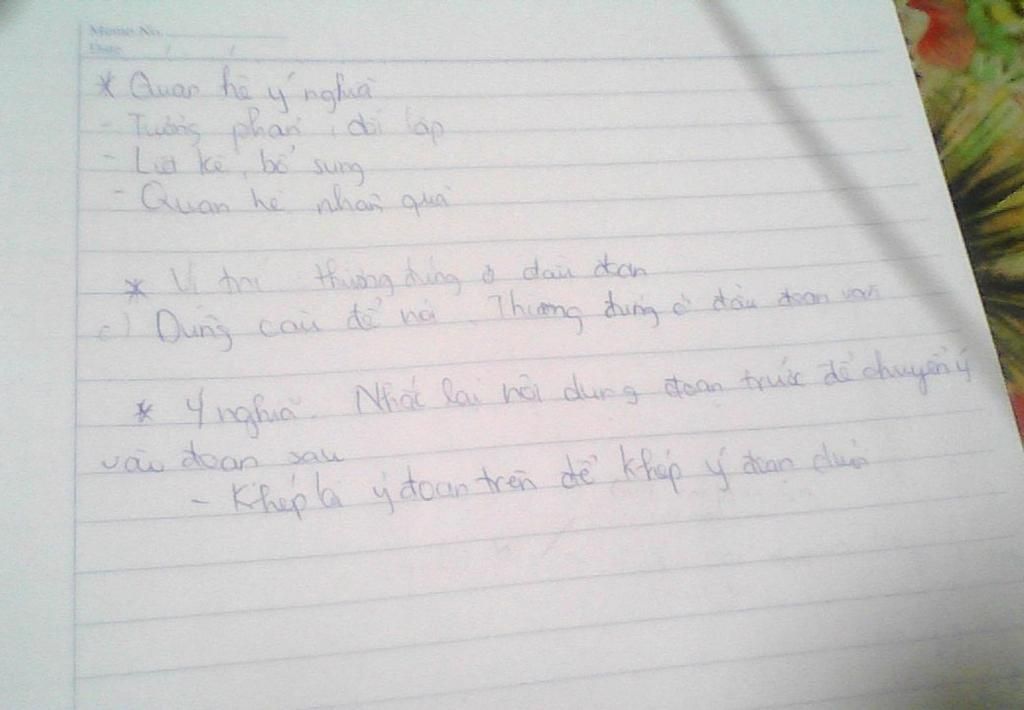 Memo No.
Date / /
* Quan hệ ý nghĩa
- Tương phản, đối lập
- Liệt kê, bổ sung
- Quan hệ nhân quả
* Vị trí thường dùng ở đầu đoạn
c) Dùng câu để nối. Thường dùng ở đầu đoạn văn
* Ý nghĩa. Nhắc lại nội dung đoạn trước để chuyển ý
vào đoạn sau
- Khép lại ý đoạn trên để khép ý đoạn dưới